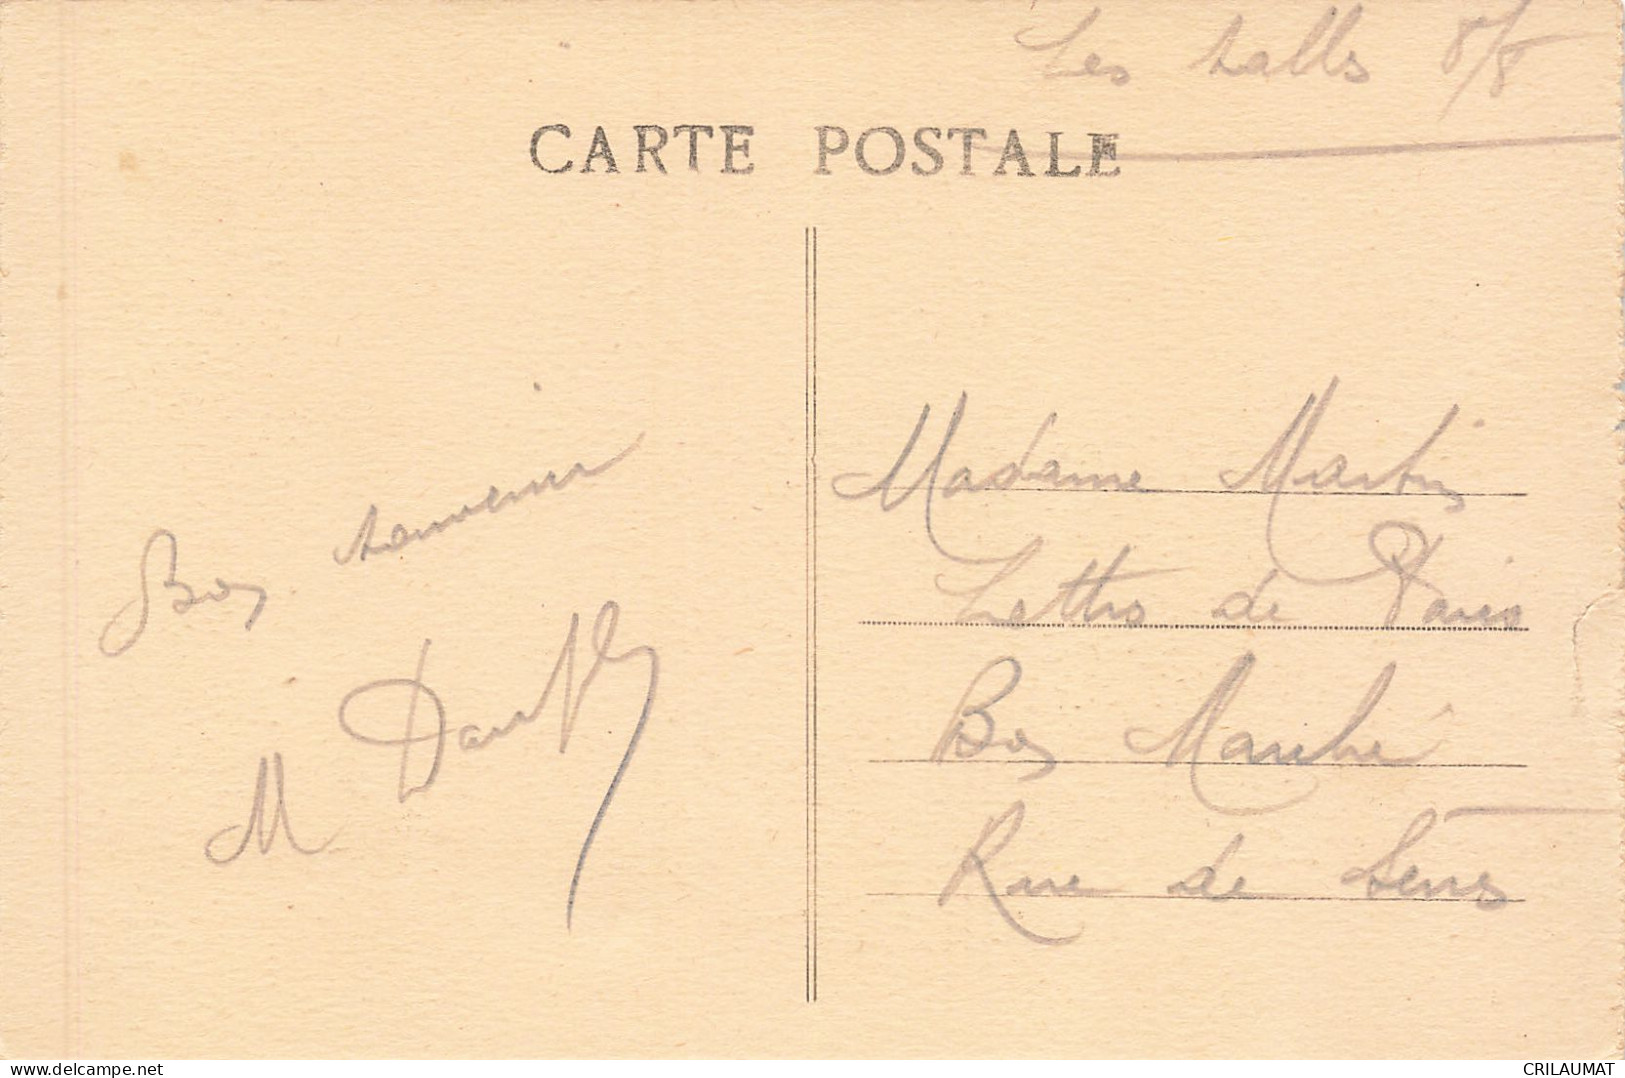 Les halls 8/8
CARTE POSTALE
Bon souvenir
M
Madame Martin
Lettres de Paris
Bon Marché
Rue de Sèvres
delcampe.net
CRILAUMAT